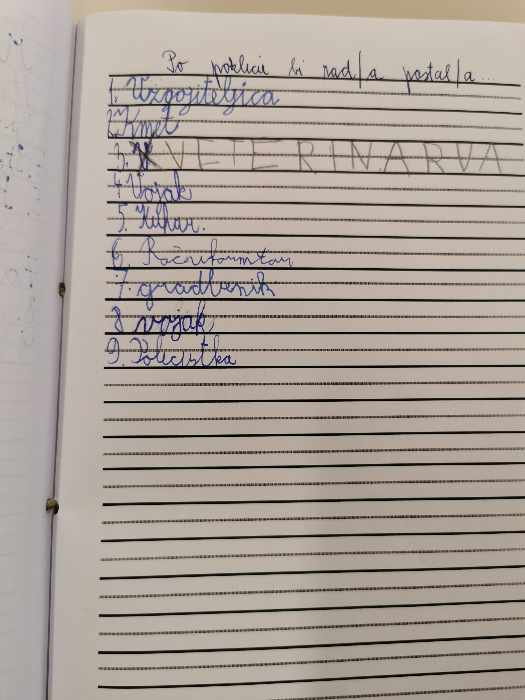 Po poklicu bi rad/a postal/a...
1. Vzgojiteljica
2. Kmet
3. VETERINARVA
4. Vojak
5. Kuhar.
6.
7. gradbenik
8 vojak
9. Policistka